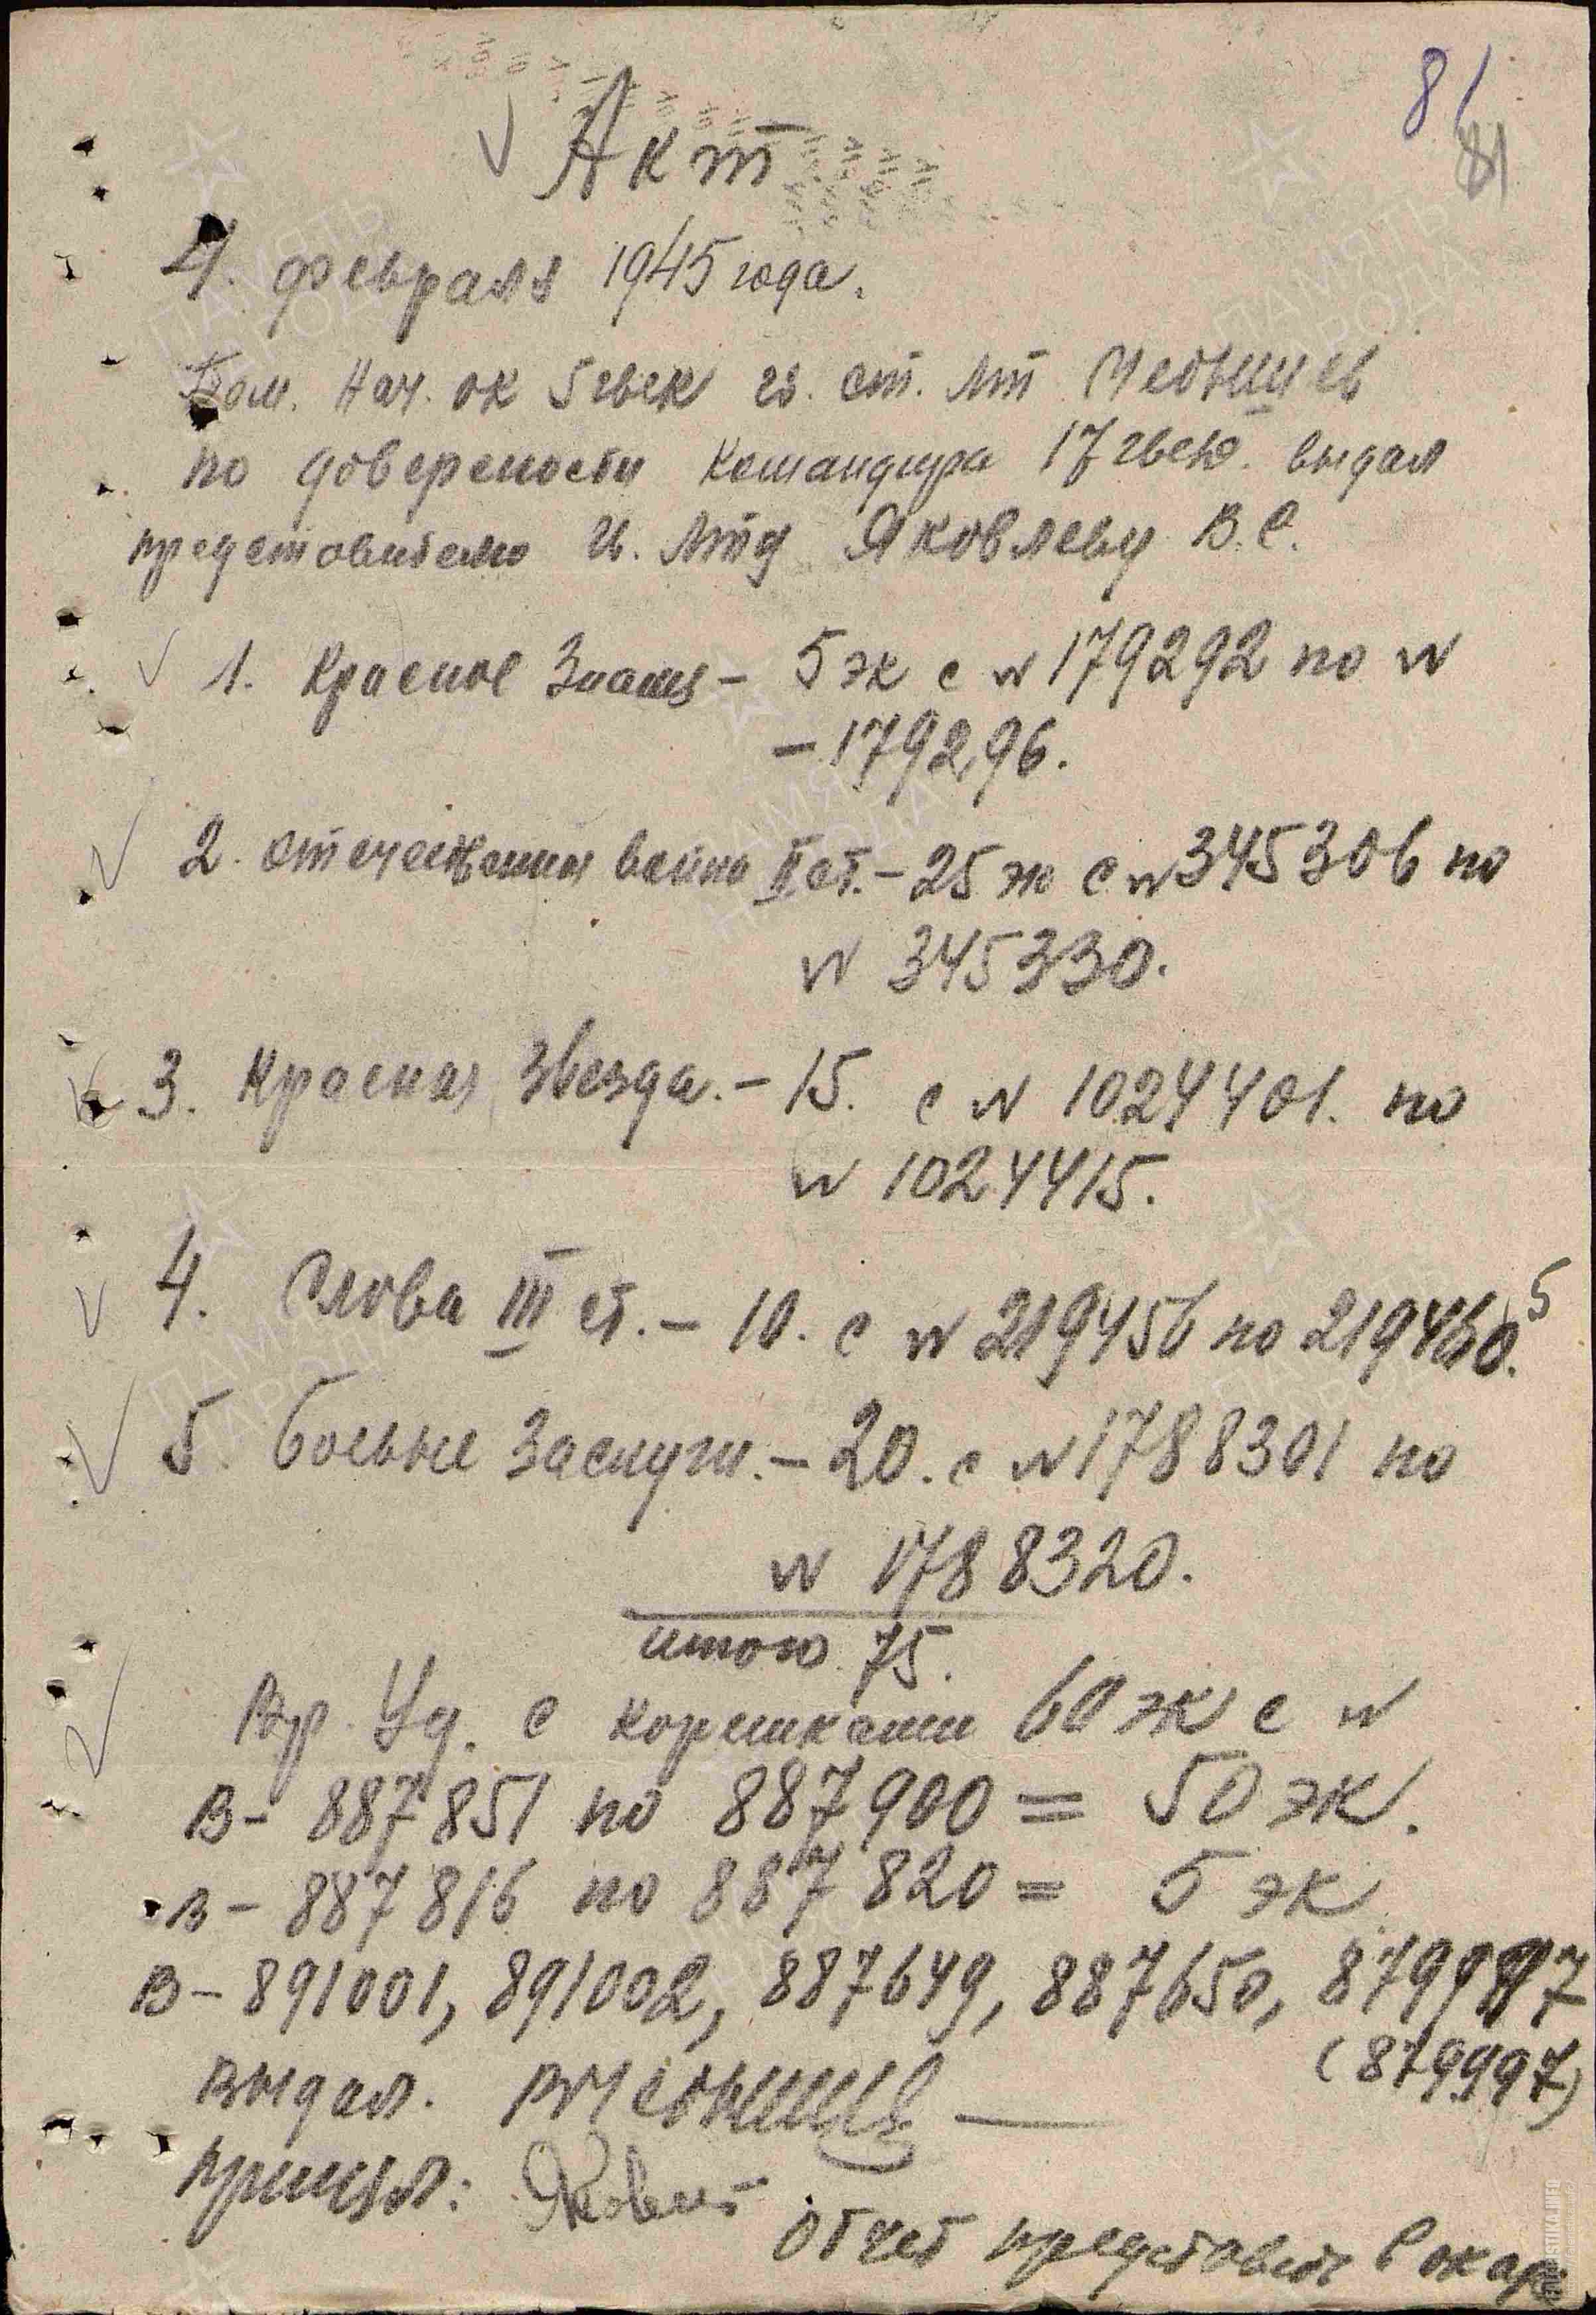 81
81
Акт
4. февраля 1945 года.
Пом. Нач. ок 5 гвск гв. ст. лт
по доверености Командира 17 гвсю. выдал
представителю гв. Лтд Яковлеву В.С.
1. Красное Знамя – 5 эк с N 179292 по N
– 179296.
2. Отечественная война II ст. – 25 эк с N 345306 по
N 345330.
3. Красная Звезда. – 15. с N 1024401. по
N 1024415.
4. Слова III ст. – 10. с N 219456 по 219460. 5
5. боевые Заслуги. – 20. с N 1788301 по
N 1788320.
итого 75.
Вр. Уд. с корешками 60 эк с N
В – 887851 по 887900 = 50 эк.
В – 887816 по 887820 = 5 эк
В – 891001, 891002, 887649, 887650, 879997
(879997)
Выдал.
Принял: Яковлев
Отчет представить
ПАМЯТЬ НАРОДА